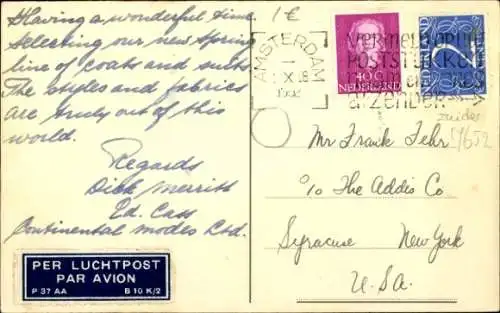 Having a wonderful time.
Selecting our new Spring
line of coats and suits.
The styles and fabrics
are truly out of this
world.
Regards
Dick Merritt
Ed. Cass
Continental Modes Ltd.
PER LUCHTPOST
PAR AVION
P 37 AA B 10 K/2
1 €
AMSTERDAM
X
VERMELD OP UW
POSTSTUKKEN
afzender
40 c
NEDERLAND
NEDERLAND
Mr Frank Fehr
% The Addis Co
Syracuse New York
U.S.A.